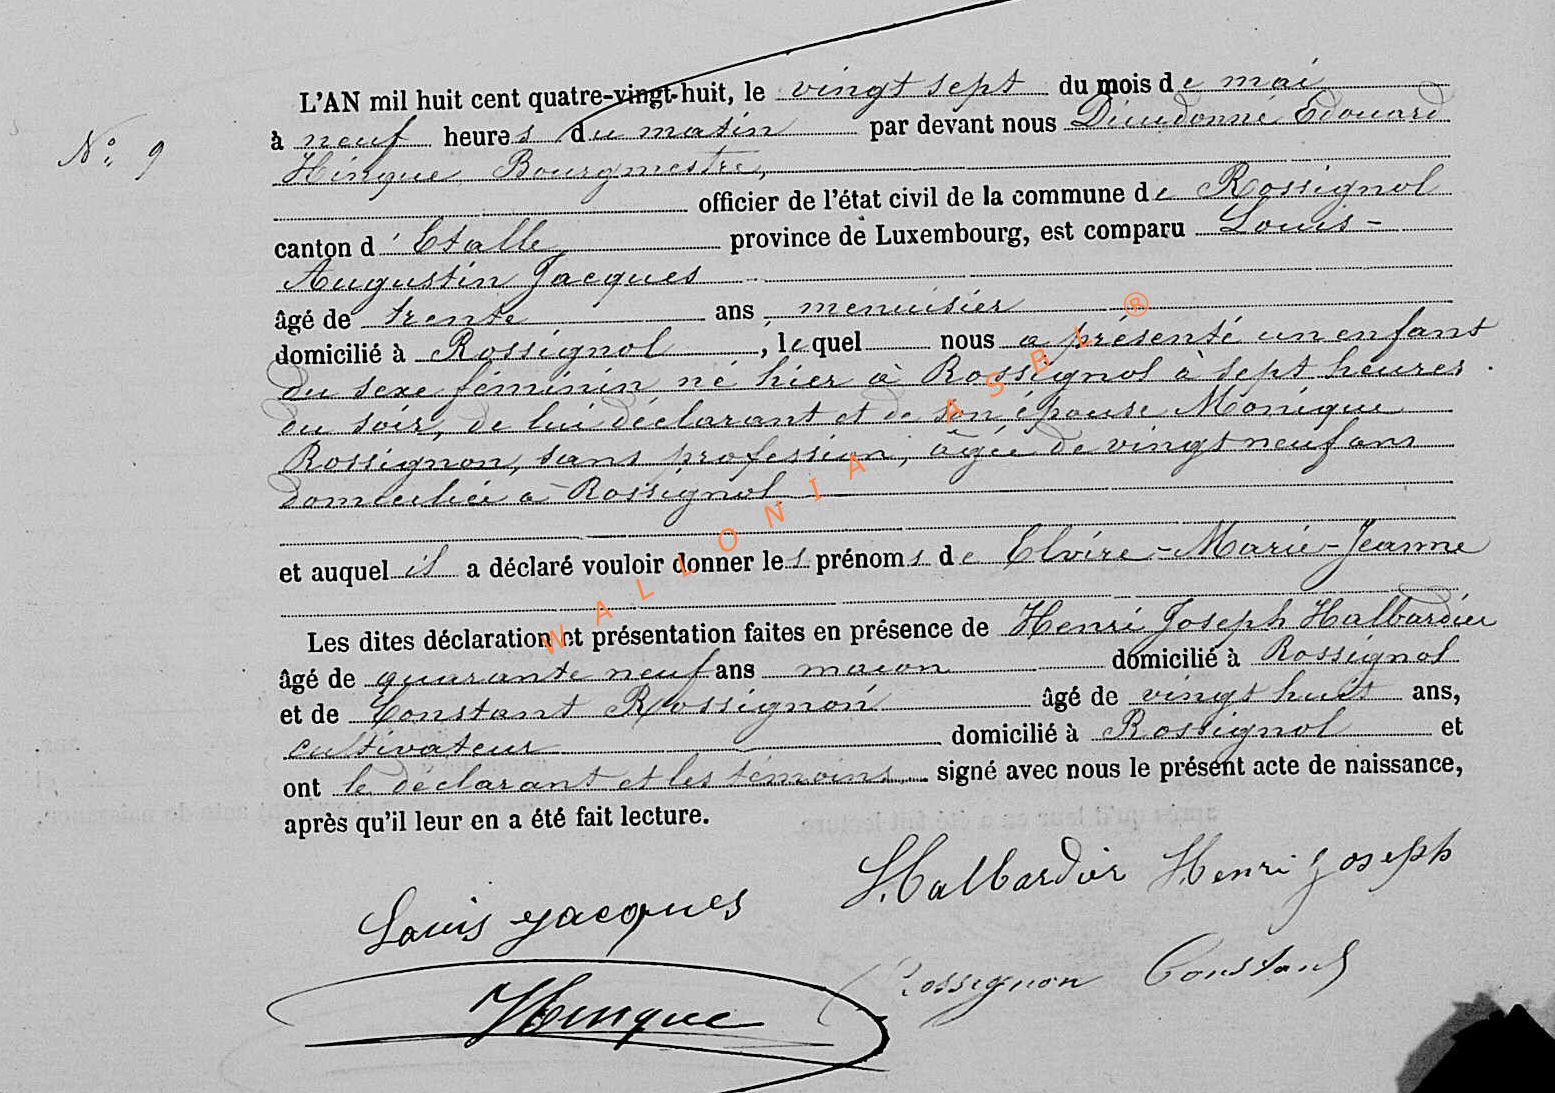 L'AN mil huit cent quatre-vingt-huit, le vingt sept du mois de mai
N° 9
à neuf heures du matin par devant nous Dieudonné Edouard
Hinque Bourgmestre,
officier de l'état civil de la commune de Rossignol
canton d'Etalle province de Luxembourg, est comparu Louis-
Augustin Jacques
âgé de trente ans menuisier
domicilié à Rossignol, lequel nous a présenté un enfant
du sexe féminin né hier à Rossignol à sept heures
du soir, de lui déclarant et de son épouse Monique
Rossignon, sans profession, âgée de vingt neuf ans
domiciliée à Rossignol
et auquel il a déclaré vouloir donner les prénoms de Elvire-Marie-Jeanne
Les dites déclaration et présentation faites en présence de Henri Joseph Halbardier
âgé de quarante neuf ans macon domicilié à Rossignol
et de Constant Rossignon âgé de vingt huit ans,
cultivateur domicilié à Rossignol et
ont le déclarant et les témoins signé avec nous le présent acte de naissance,
après qu'il leur en a été fait lecture.
Halbardier Henri Joseph
Louis Jacques
Rossignon Constant
Hinque
WALLONIA ASBL ®